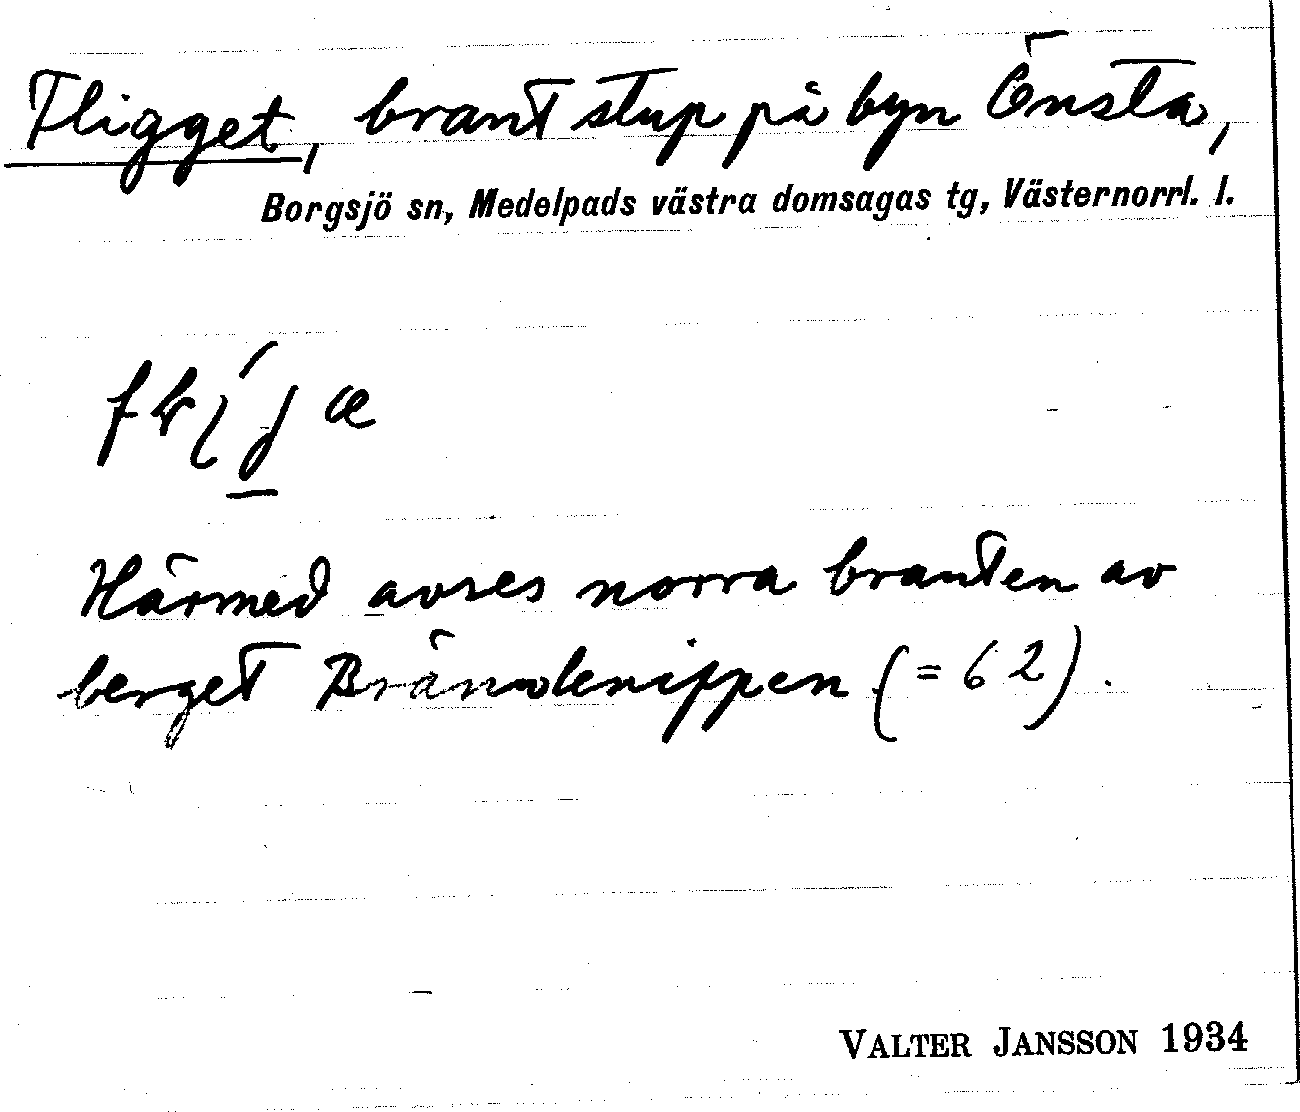 Fligget, brant stup på byn Önsta,
Borgsjö sn, Medelpads västra domsagas tg, Västernorrl. l.
Härmed avses norra branten av
berget Brändknippen (= 62).
VALTER JANSSON 1934